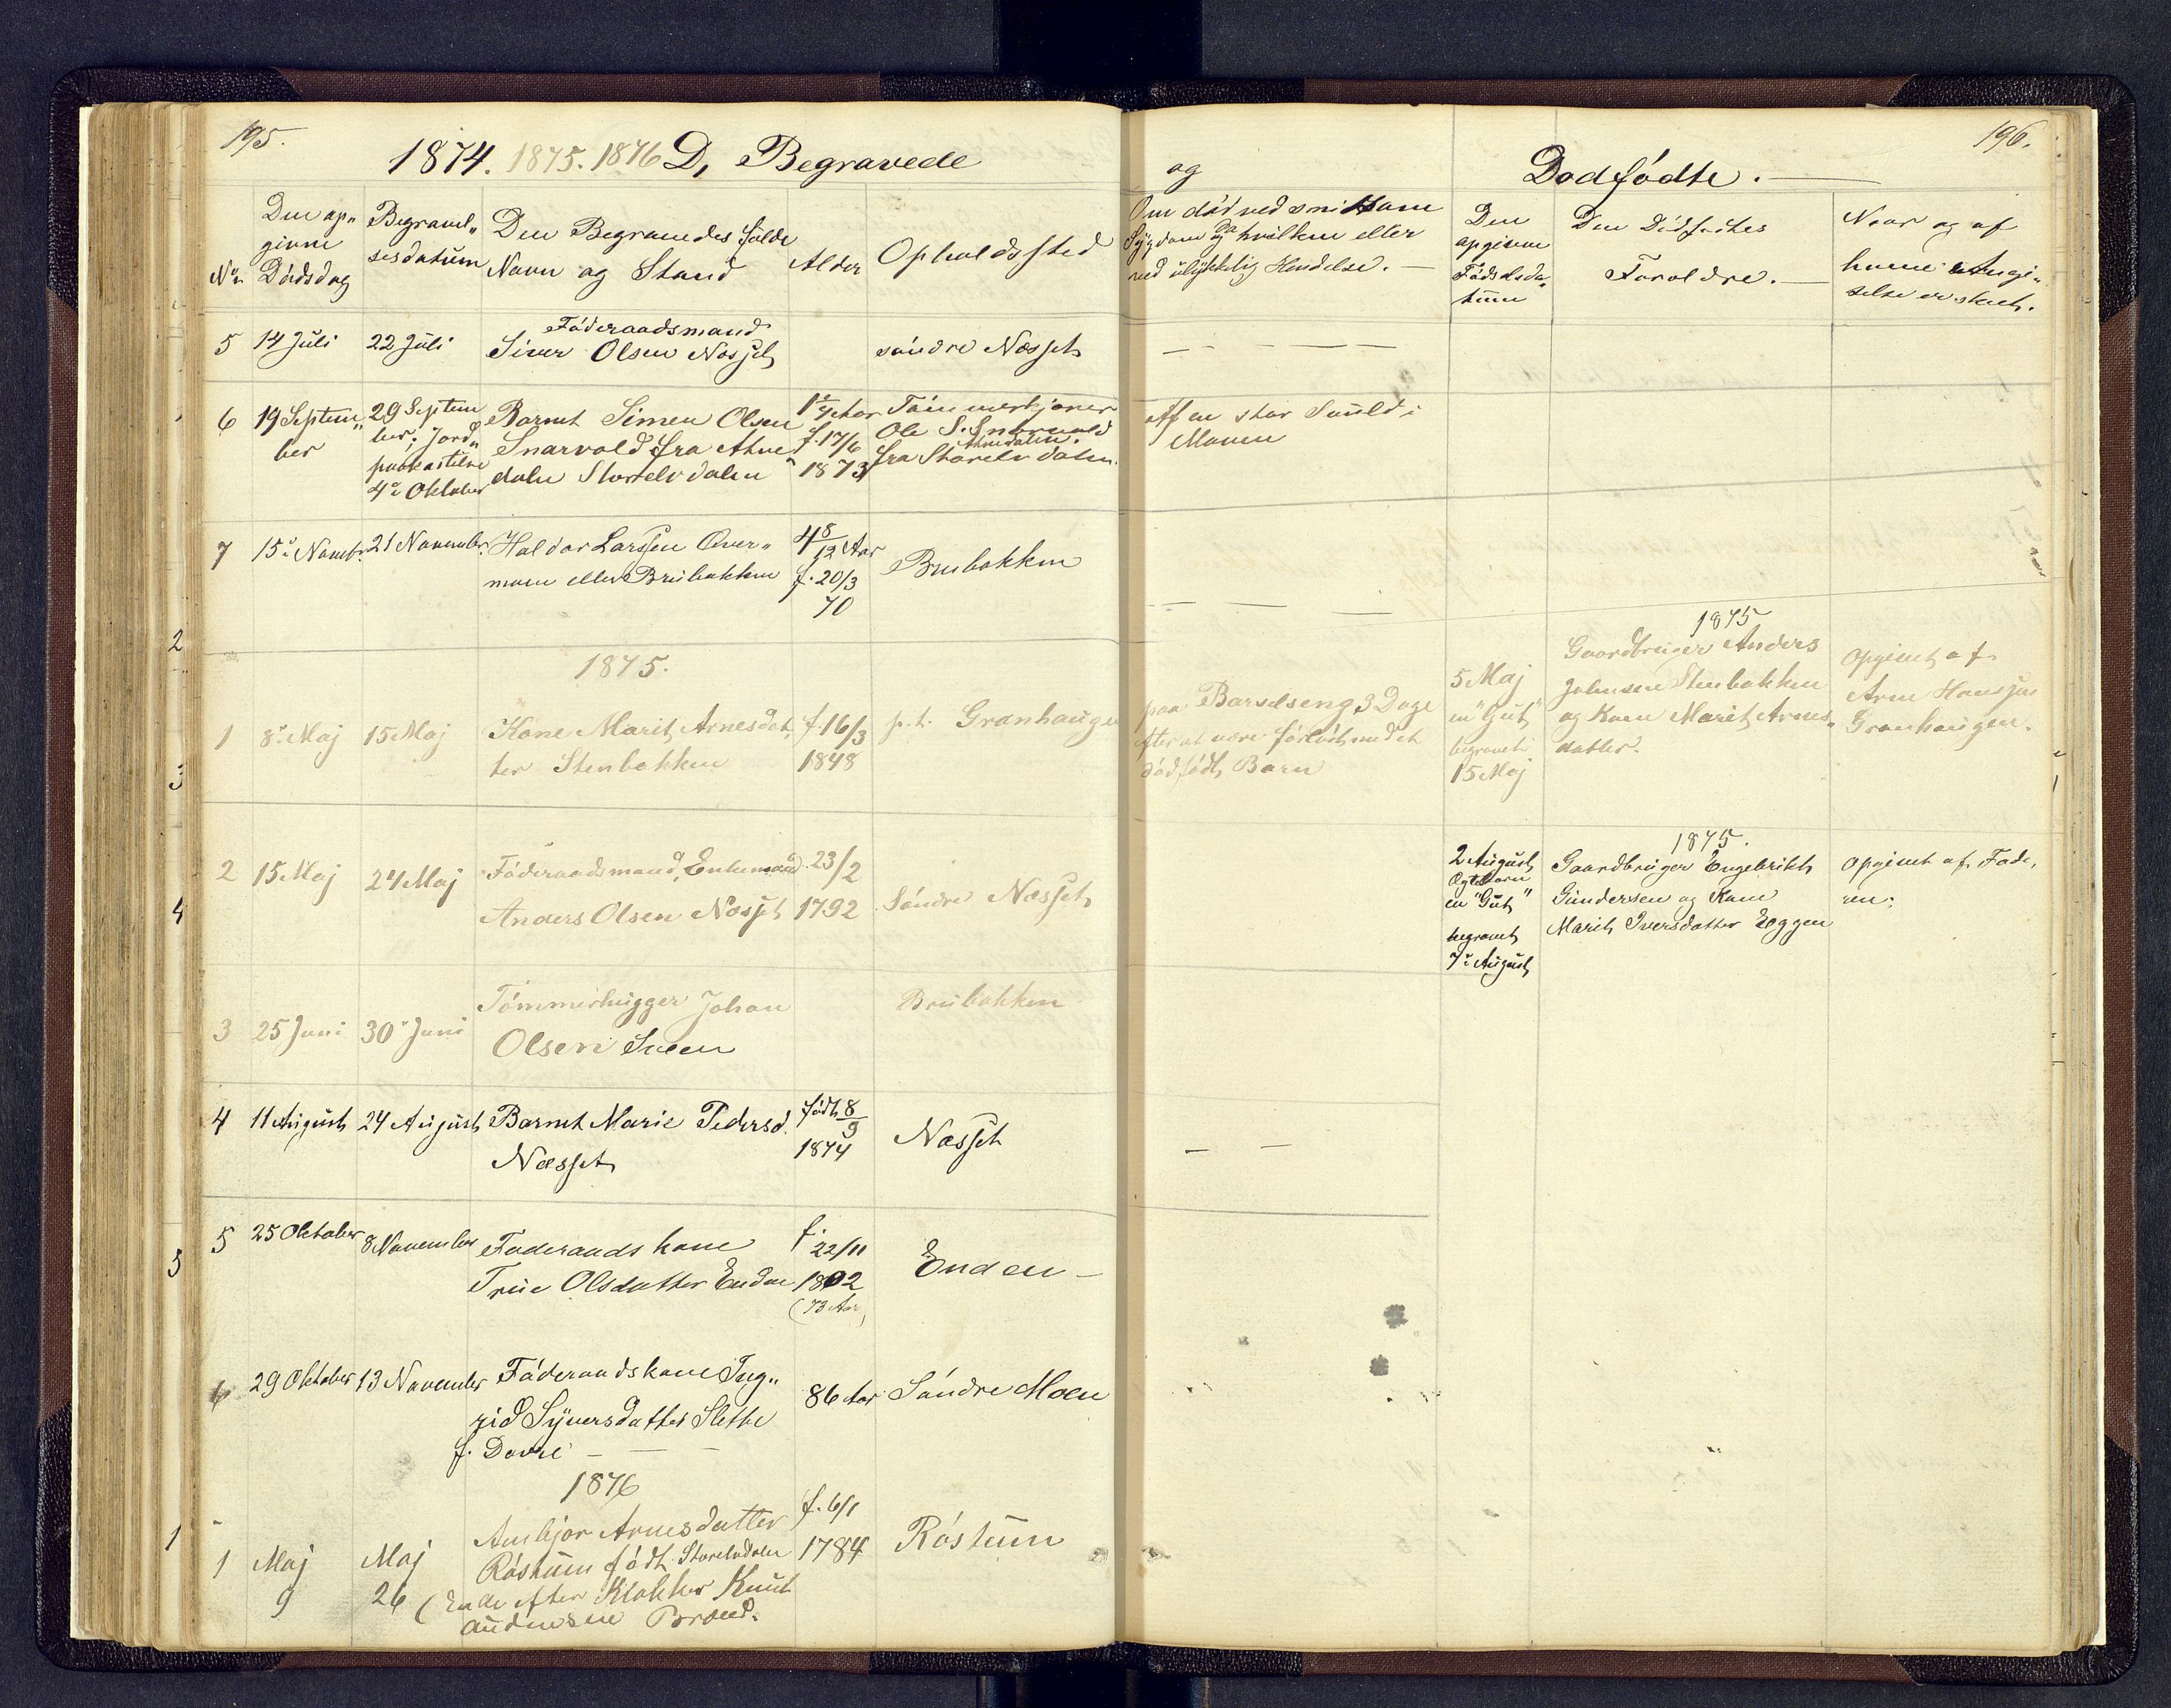 195.
1874. 1875. 1876 D, Begravede
og
Dødfødte.
196.
No
Den op„
givne
Dødsdag
Begravel„
sesdatum
Den Begravedes fulde
Navn og Stand
Alder
Opholdssted
Om død ved smitsom
Sygdom og hvilken eller
ved ulykkelig Hendelse.
Den
opgivne
Fødselsda„
tum
Den Dødfødtes
Forældre.
Naar og af
hvem Angi„
velse er skeet.
5
14 Juli
22 Juli
Føderaadsmand
Siver Olsen Næsset
søndre Næsset
6
19 Septem„
ber
29 Septem
ber; Jord„
paakastelse
4de Oktober
Barnet Simen Olsen
Snarvold fra Atne
dalen Storelvdalen
1 1/4 Aar
f. 17/6
1873
Tømmerkjører
Ole S. Snarvold
Atnedalen.
fra Storelvdalen
Af en stor Svuld i
Maven
7
15de Novembr.
21 November
Haldor Larssen Over„
moen eller Brubakken
4 8/12 Aar
f. 20/3
70
Brubakken
1875.
1
8de Maj
15 Maj
Kone Marit Arnesdat
ter Stenbakken
f. 16/3
1848
p.t. Granhaugen
paa Barselseng 3 Dage
efter at være forløst med et
dødfødt Barn
5 Maj
en "Gut"
begravet
15 Maj
1875
Gaardbruger Anders
Johnsen Stenbakken
og Kone Marit Arnes„
datter.
Opgivet af
Arne Hansen
Granhaugen.
2
15 Maj
24 Maj
Føderaadsmand, Enkemand
Anders Olsen Næsset
23/2
1792
Søndre Næsset
2 August
Ægtebarn
en "Gut"
begravet
7de August
1875.
Gaardbruger Engebrikt
Gundersen og Kone
Marit Iversdatter Eggen
Opgivet af Fade„
ren.
3
25 Juni
30te Juni
Tømmerhugger Johan
Olsen Sveen
Brubakken
4
11 August
24 August
Barnet Marie Pedersd.
Næsset
født 8/9
1874
Næsset
5
25 Oktober
8 November
Føderaadskone
True Olsdatter Enden
f.
22/11
1802
(73 Aar)
Enden
6
29 Oktober
13 November
Føderaadskone Ing„
rid Syversdatter Slette
f. Dovre
86 Aar
Søndre Moen
1876
1
Maj
9
Maj
26
Ambjør Arnesdatter
Røstum født Storelvdalen
(Enke efter Klokker Knut
Audunsen Brænd.
f. 6/1
1784
Røstum
2
3
4
5
1